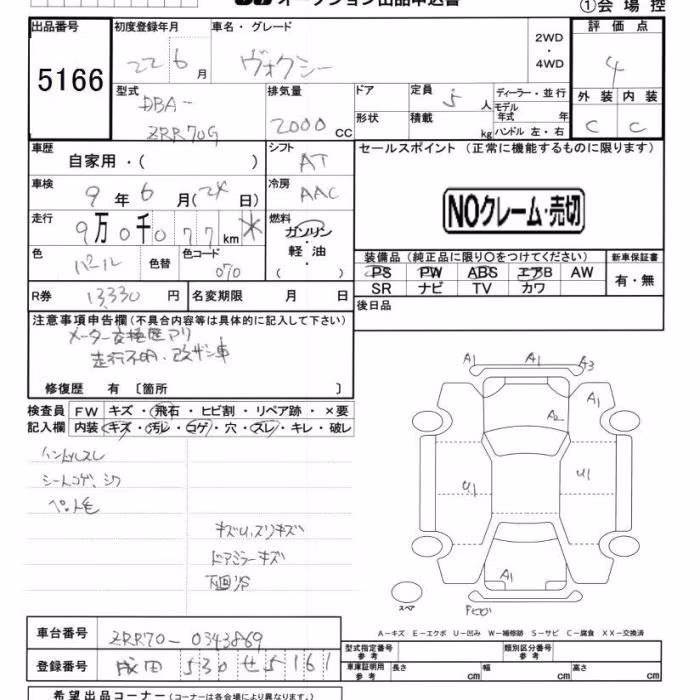 オークション出品申込書 ①会場控
出品番号 5166
初度登録年月 22 6月
車名・グレード ヴォクシー
2WD・4WD
評価点 4
型式 DBA-ZRR70G
排気量 2000 CC
ドア
形状
定員 5 人
積載 kg
ディーラー・並行
モデル年式 年
ハンドル 左・右
外装 内装
C C
車歴 自家用・( )
シフト AT
セールスポイント (正常に機能するものに限ります)
車検 9年6月(24日)
冷房 AAC
NOクレーム・売切
走行 9万0千077km *
燃料 ガソリン・軽油・( )
色 パール 色替
色コード 070
装備品(純正品に限り○をつけてください) 新車保証書
PS PW ABS エアB AW 有・無
SR ナビ TV カワ
R券 13330円 名変期限 月 日
後日品
注意事項申告欄(不具合内容等は具体的に記入して下さい)
メーター交換歴アリ
走行不明・改ザン車
修復歴 有 〔箇所 〕
検査員記入欄
FW キズ・飛石・ヒビ割・リペア跡・×要
内装 キズ・汚レ・コゲ・穴・スレ・キレ・破レ
ハンドルスレ
シートコゲ、シワ
ペット毛
キズU、スリキズ
ドアミラーキズ
下廻リサ
A1 A1 A3
A1
A2
U1 U1
A1
スペア
A-キズ E-エクボ U-凹み W-補修跡 S-サビ C-腐食 XX-交換済
車台番号 ZRR70-0343869
登録番号 成田 530 せ5161
型式指定番号 参考 類別区分番号 参考
車庫証明用 参考 長さ cm 幅 cm 高さ cm
希望出品コーナー(コーナーは各会場により異なります。)